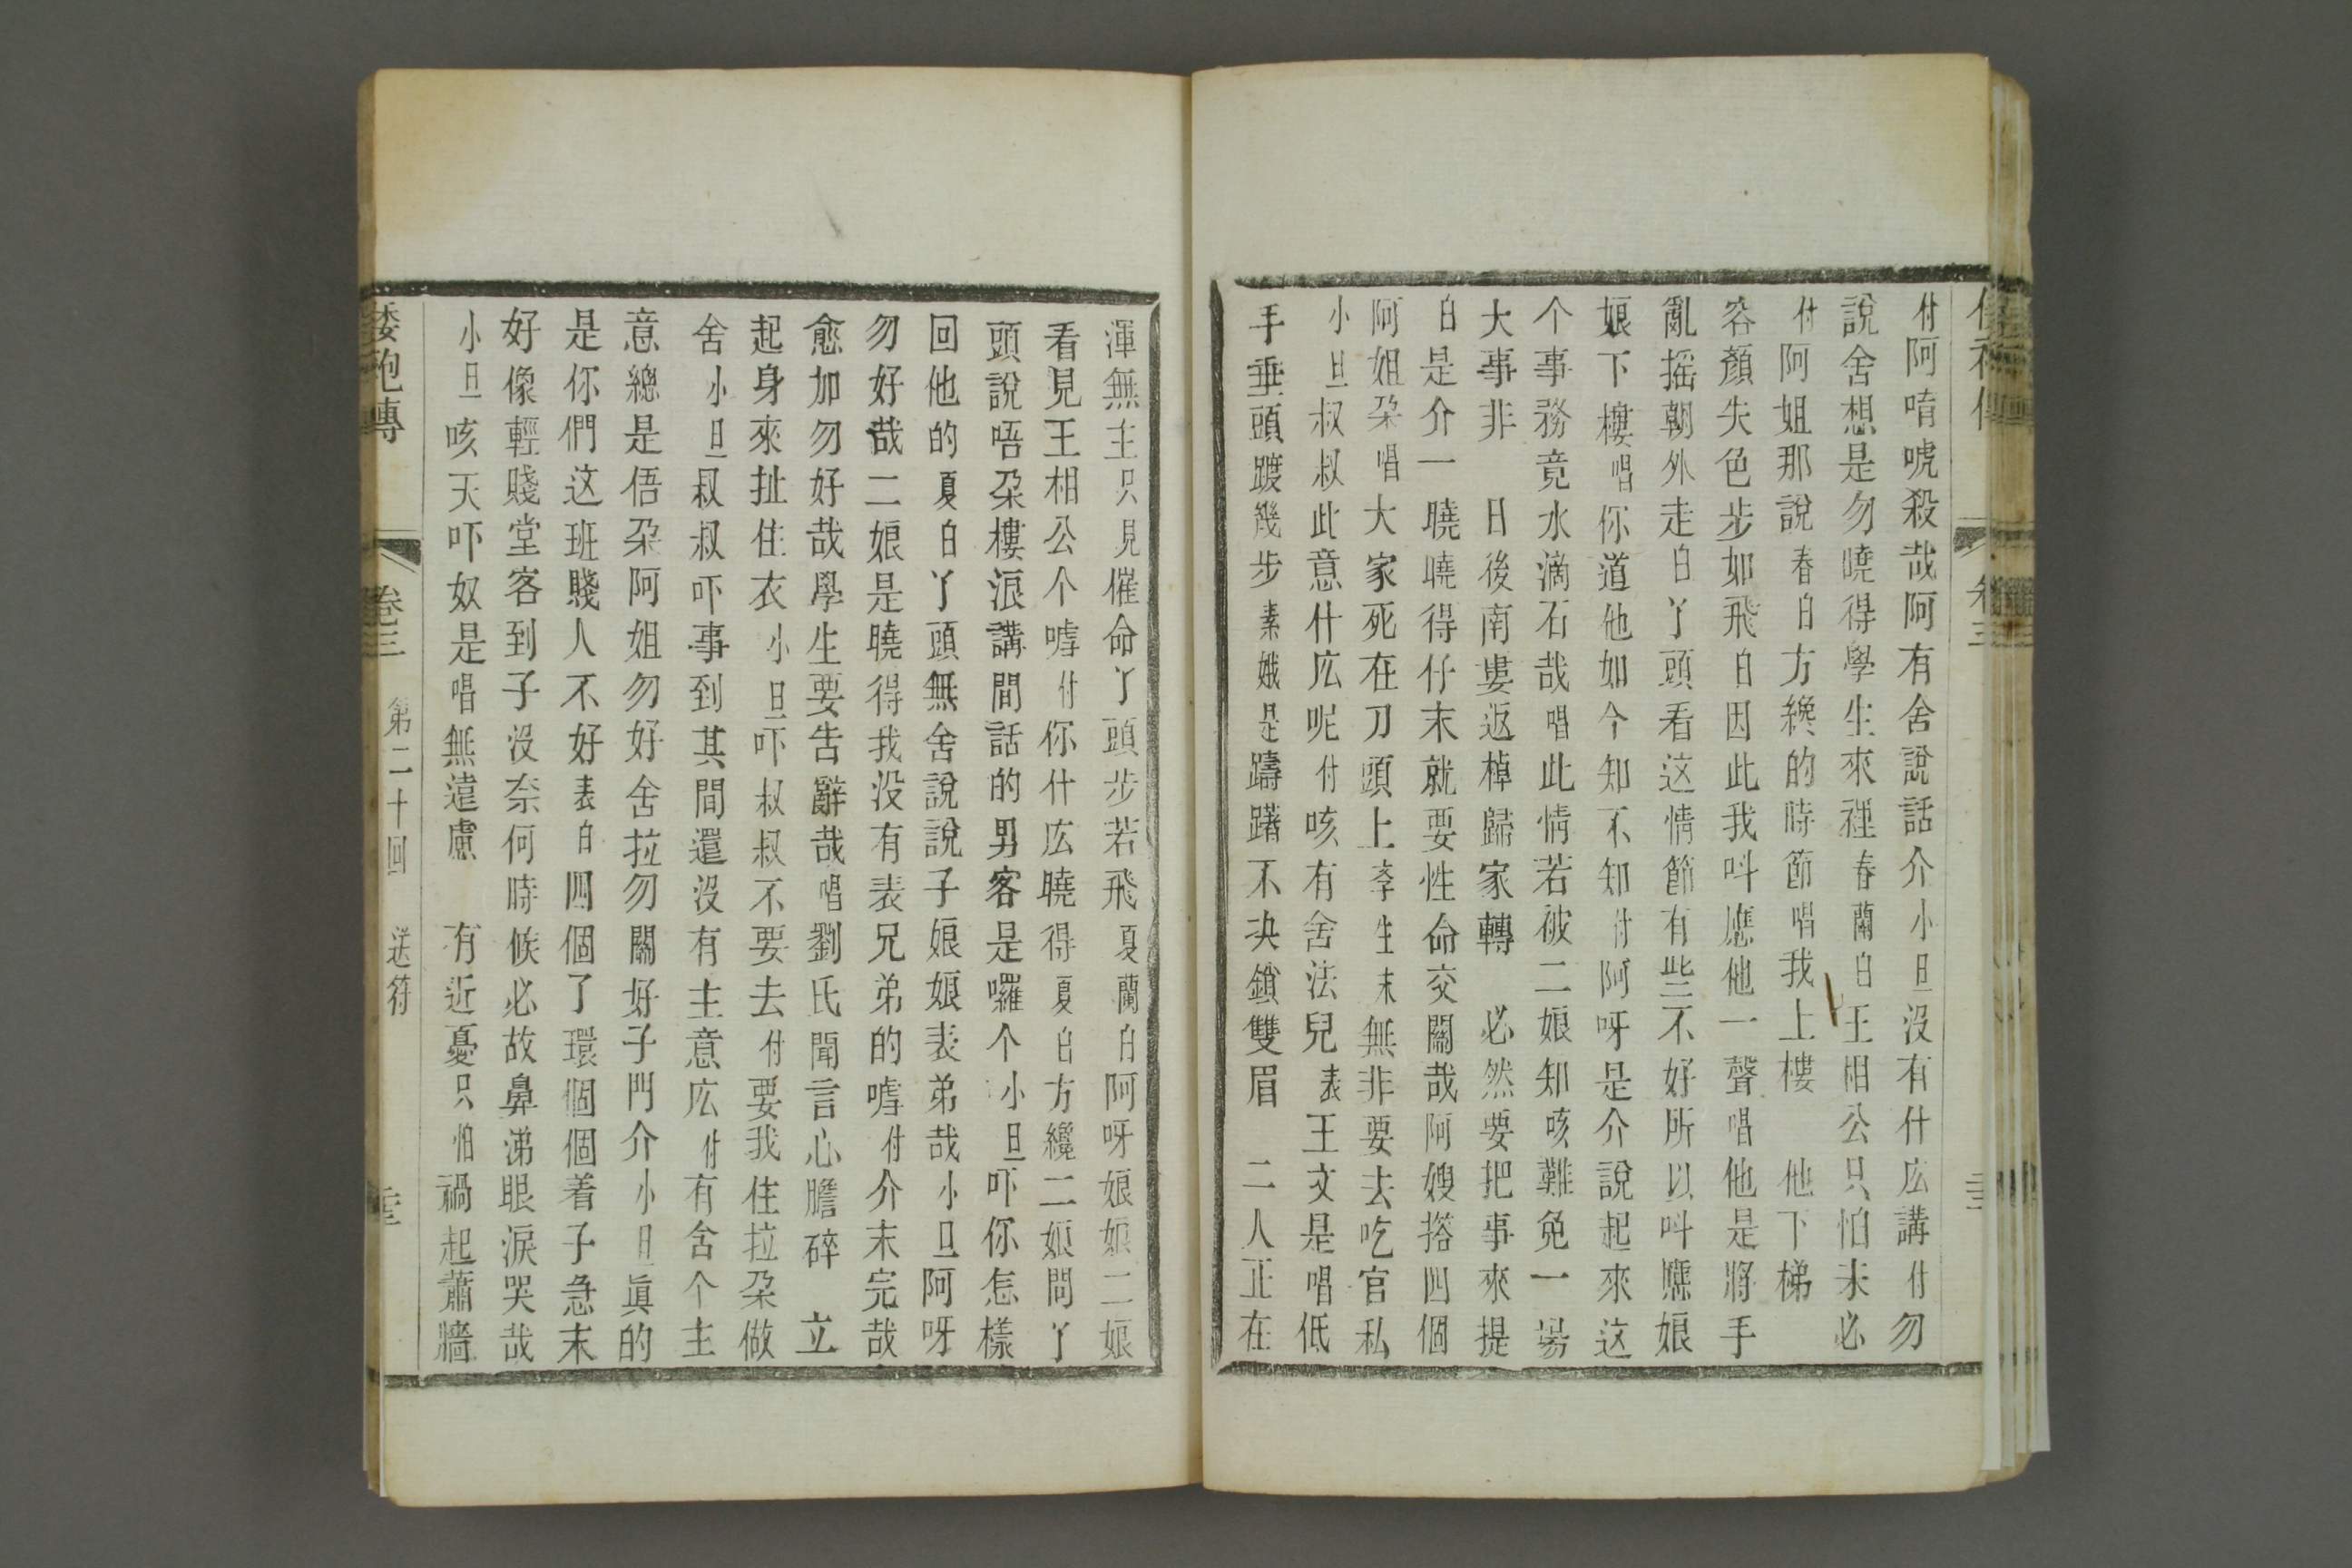 付阿唷唬殺哉阿有舍說話介小旦沒有什広講付勿
說舍想是勿曉得學生來裡春蘭白王相公只怕未必
付阿姐那說春白方纔的時節唱我上樓 他下梯
容顏失色步如飛白因此我呌應他一聲唱他是將手
亂搖朝外走白丫頭看这情節有些不好所以呌應娘
娘下樓唱你道他如今知不知付阿呀是介說起來这
个事務竟水滴石哉唱此情若被二娘知咳難免一場
大事非 日後南婁返棹歸家轉 必然要把事來提
白是介一曉曉得仔末就要性命交關哉阿嫂搭四個
阿姐朶唱大家死在刀頭上孝生末無非要去吃官私
小旦叔叔此意什広呢付咳有舍法兒表王文是唱低
手垂頭踱幾步素娥是躊躇不决鎖雙眉 二人正在
渾無主只見催命丫頭步若飛夏蘭白阿呀娘娘二娘
看見王相公个嘑付你什広曉得夏白方纔二娘問丫
頭說唔朶樓浪講間話的男客是囉个小旦吓你怎樣
回他的夏白丫頭無舍說說子娘娘表弟哉小旦阿呀
勿好哉二娘是曉得我没有表兄弟的嘑付介末完哉
愈加勿好哉學生要告辭哉唱劉氏聞言心膽碎 立
起身來扯住衣小旦吓叔叔不要去付要我住拉朶做
舍小旦叔叔吓事到其間還沒有主意広付有舍个主
意總是俉朶阿姐勿好舍拉勿關好子門介小旦眞的
是你們这班賤人不好表白四個了環個個着子急末
好像輕賤堂客到子沒奈何時候必故鼻涕眼淚哭哉
小旦咳天吓奴是唱無遠慮 有近憂只怕禍起蕭牆
倭袍傳 卷三 第二十回 送符